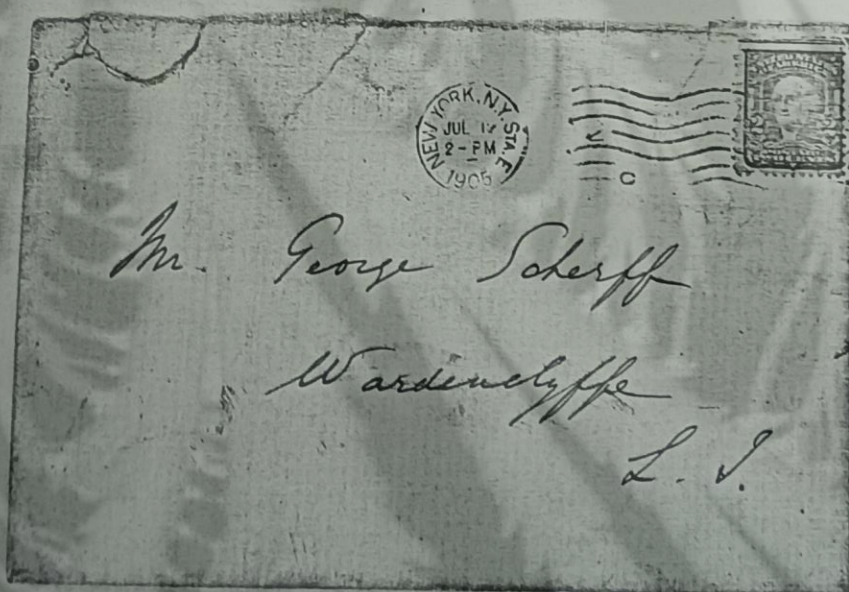 NEW YORK, N.Y. STA. E
JUL
2 - PM
1905
C
Mr. George Scherff
Wardenclyffe
L. I.